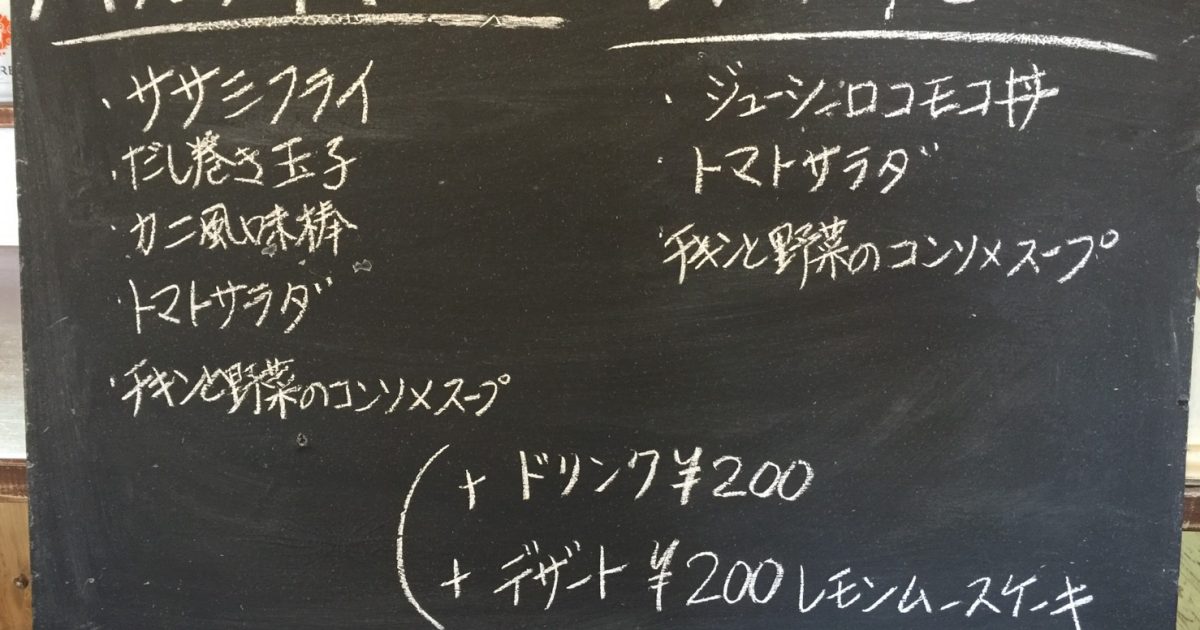 ・ササミフライ
・だし巻き玉子
・カニ風味棒
・トマトサラダ
・チキンと野菜のコンソメスープ
・ジューシーロコモコ丼
・トマトサラダ
チキンと野菜のコンソメスープ
+ ドリンク ¥200
+ デザート ¥200 レモンムースケーキ